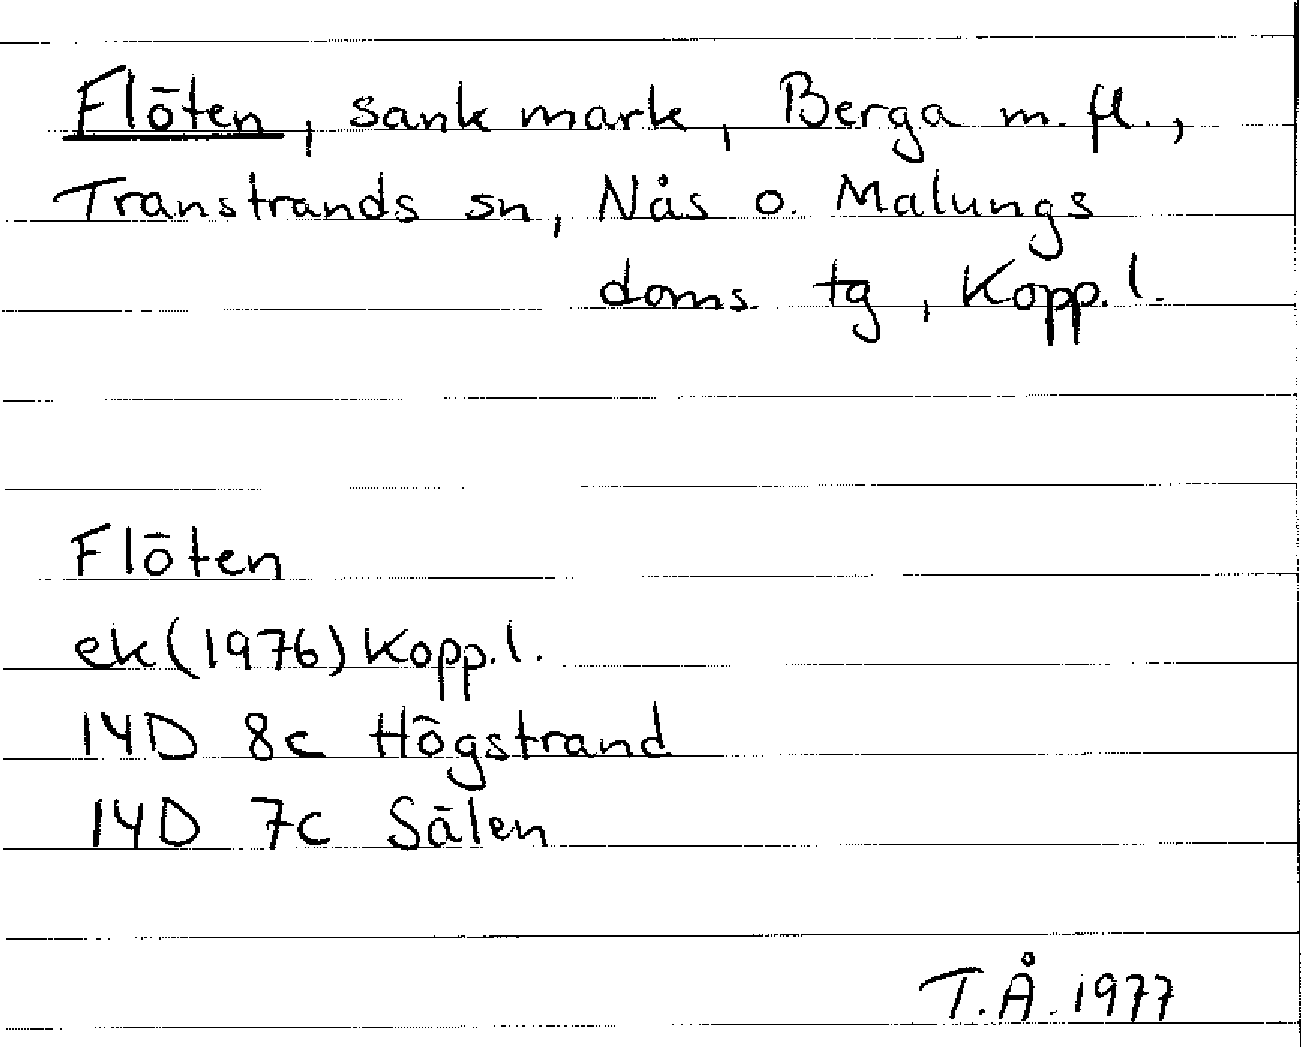 Flöten, sank mark, Berga m. fl.,
Transtrands sn, Nås o. Malungs
doms. tg, Kopp. l.
Flöten
ek (1976) Kopp. l.
14D 8c Högstrand
14D 7c Sälen
T.Å. 1977